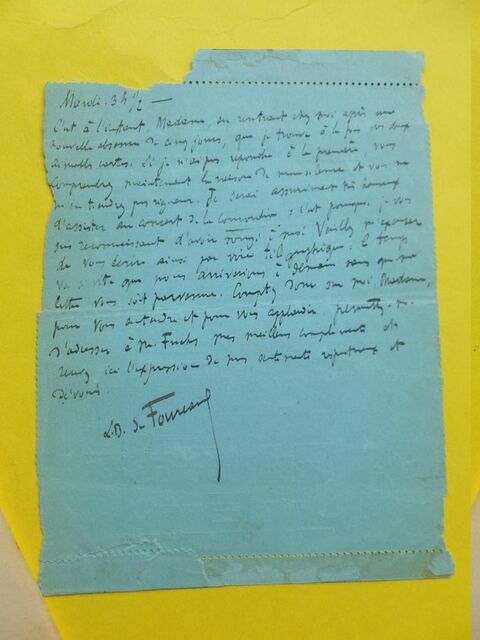 Mardi. 3h 1/2 —
C'est à l'instant, Madame, en rentrant chez moi après une
nouvelle absence de cinq jours, que je trouve à la fois vos deux
aimables cartes. Si je n'ai pas répondu à la première, vous
comprendrez maintenant la raison de mon silence et vous ne
m'en tiendrez pas rigueur. Je serai assurément très heureux
d'assister au concert de la : c'est pourquoi je vous
suis reconnaissant d'avoir songé à moi. Veuillez m'excuser
de vous écrire ainsi par voie télégraphique. Le temps
va si vite que nous arriverions à demain sans que ma
lettre vous soit parvenue. Comptez donc sur moi, Madame,
pour vous entendre et pour vous applaudir, permettez-moi
d'adresser à Mr. Fuchs mes meilleurs compliments et
recevez ici l'expression de mes sentiments respectueux et
dévoués.
L. de Fourcaud